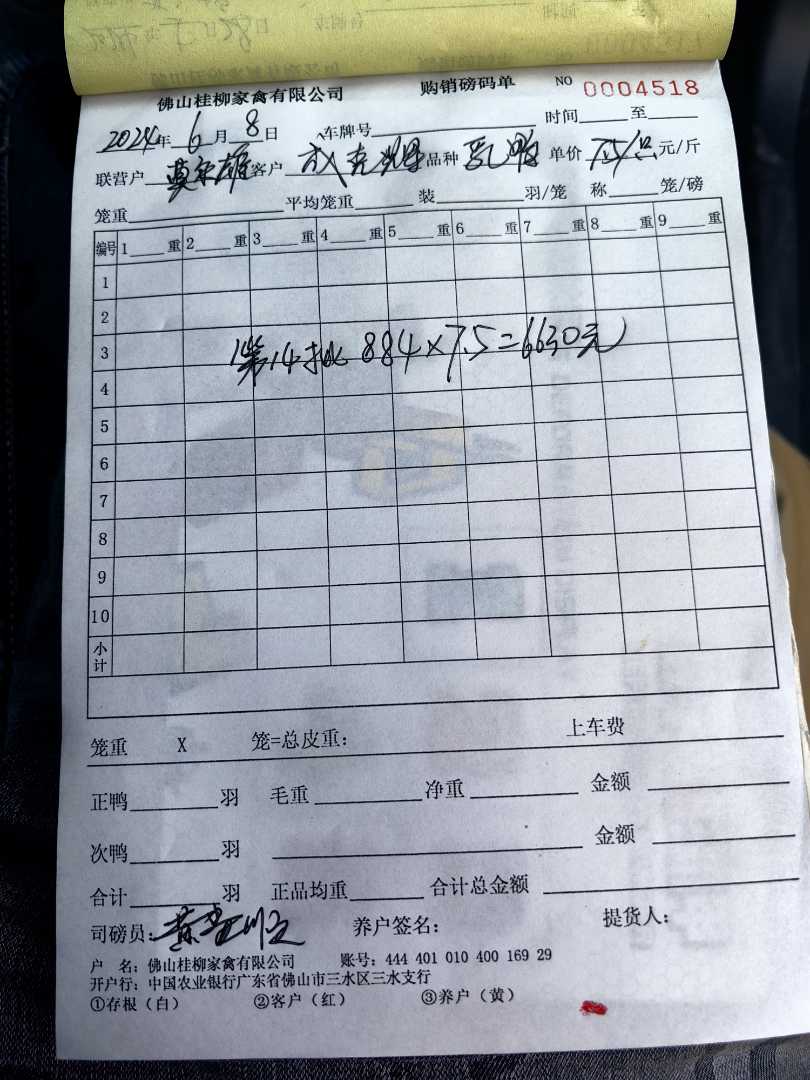 佛山桂柳家禽有限公司 购销磅码单 NO 0004518
2024年6月8日 车牌号 时间 至
联营户 客户 品种 乳鸭 单价 7.5/只 元/斤
笼重 平均笼重 装 羽/笼 称 笼/磅
编号 1 重 2 重 3 重 4 重 5 重 6 重 7 重 8 重 9 重
1
2
3
第14批 884×7.5=6630元
4
5
6
7
8
9
10
小计
笼重 X 笼=总皮重: 上车费
正鸭 羽 毛重 净重 金额
次鸭 羽 金额
合计 羽 正品均重 合计总金额
司磅员: 养户签名: 提货人:
户 名: 佛山桂柳家禽有限公司 账号: 444 401 010 400 169 29
开户行: 中国农业银行广东省佛山市三水区三水支行
①存根（白） ②客户（红） ③养户（黄）